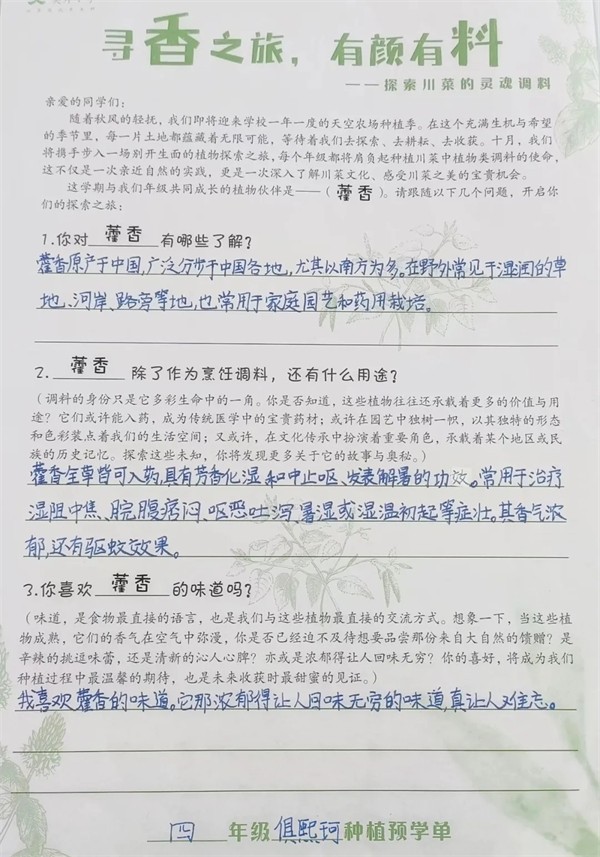 寻香之旅，有颜有料
——探索川菜的灵魂调料
亲爱的同学们：
随着秋风的轻抚，我们即将迎来学校一年一度的天空农场种植季。在这个充满生机与希望
的季节里，每一片土地都蕴藏着无限可能，等待着我们去探索、去耕耘、去收获。十月，我们
将携手步入一场别开生面的植物探索之旅，每个年级都将肩负起种植川菜中植物类调料的使命，
这不仅是一次亲近自然的实践，更是一次深入了解川菜文化、感受川菜之美的宝贵机会。
这学期与我们年级共同成长的植物伙伴是——（藿香）。请跟随以下几个问题，开启你
们的探索之旅：
1.你对 藿香 有哪些了解？
藿香原产于中国,广泛分步于中国各地,尤其以南方为多。在野外常见于湿润的草
地、河岸、路旁等地,也常用于家庭园艺和药用栽培。
2. 藿香 除了作为烹饪调料，还有什么用途？
（调料的身份只是它多彩生命中的一角。你是否知道，这些植物往往还承载着更多的价值与用
途？它们或许能入药，成为传统医学中的宝贵药材；或许在园艺中独树一帜，以其独特的形态
和色彩装点着我们的生活空间；又或许，在文化传承中扮演着重要角色，承载着某个地区或民
族的历史记忆。探索这些未知，你将发现更多关于它的故事与奥秘。）
藿香全草皆可入药,具有芳香化湿和中止呕、发表解暑的功效。常用于治疗
湿阻中焦、脘腹痞闷、呕恶吐泻、暑湿或湿温初起等症壮。其香气浓
郁,还有驱蚊效果。
3.你喜欢 藿香 的味道吗？
（味道，是食物最直接的语言，也是我们与这些植物最直接的交流方式。想象一下，当这些植
物成熟，它们的香气在空气中弥漫，你是否已经迫不及待想要品尝那份来自大自然的馈赠？是
辛辣的挑逗味蕾，还是清新的沁人心脾？亦或是浓郁得让人回味无穷？你的喜好，将成为我们
种植过程中最温馨的期待，也是未来收获时最甜蜜的见证。）
我喜欢藿香的味道。它那浓郁得让人回味无穷的味道,真让人难忘。
四 年级 俱熙珂 种植预学单